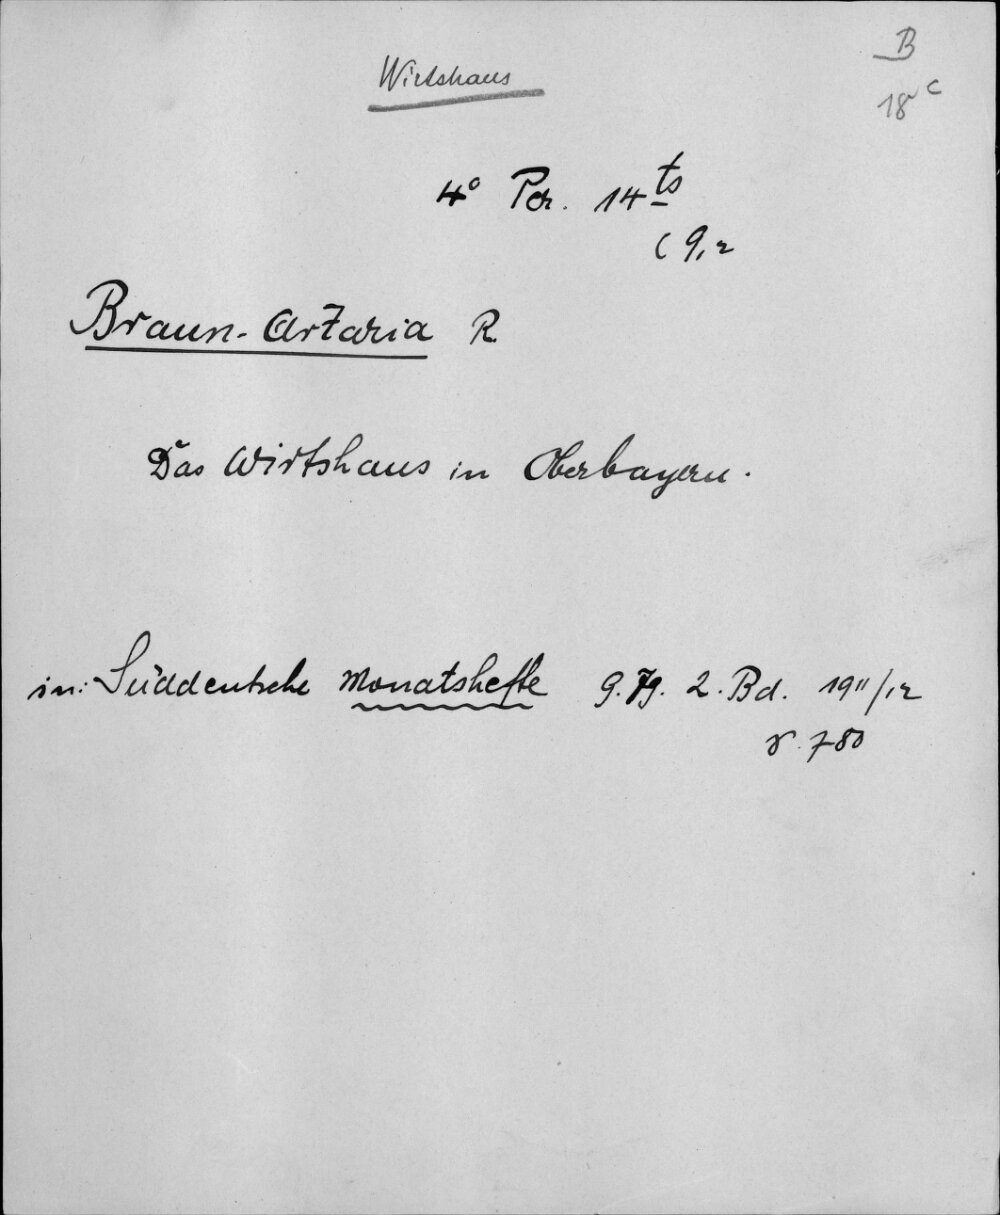 Wirtshaus
B
18 c
4° Per. 14 ts
(9,2
Braun-Artaria R
Das Wirtshaus in Oberbayern.
in: Süddeutsche Monatshefte 9. Jg. 2. Bd. 1911/12
S. 780